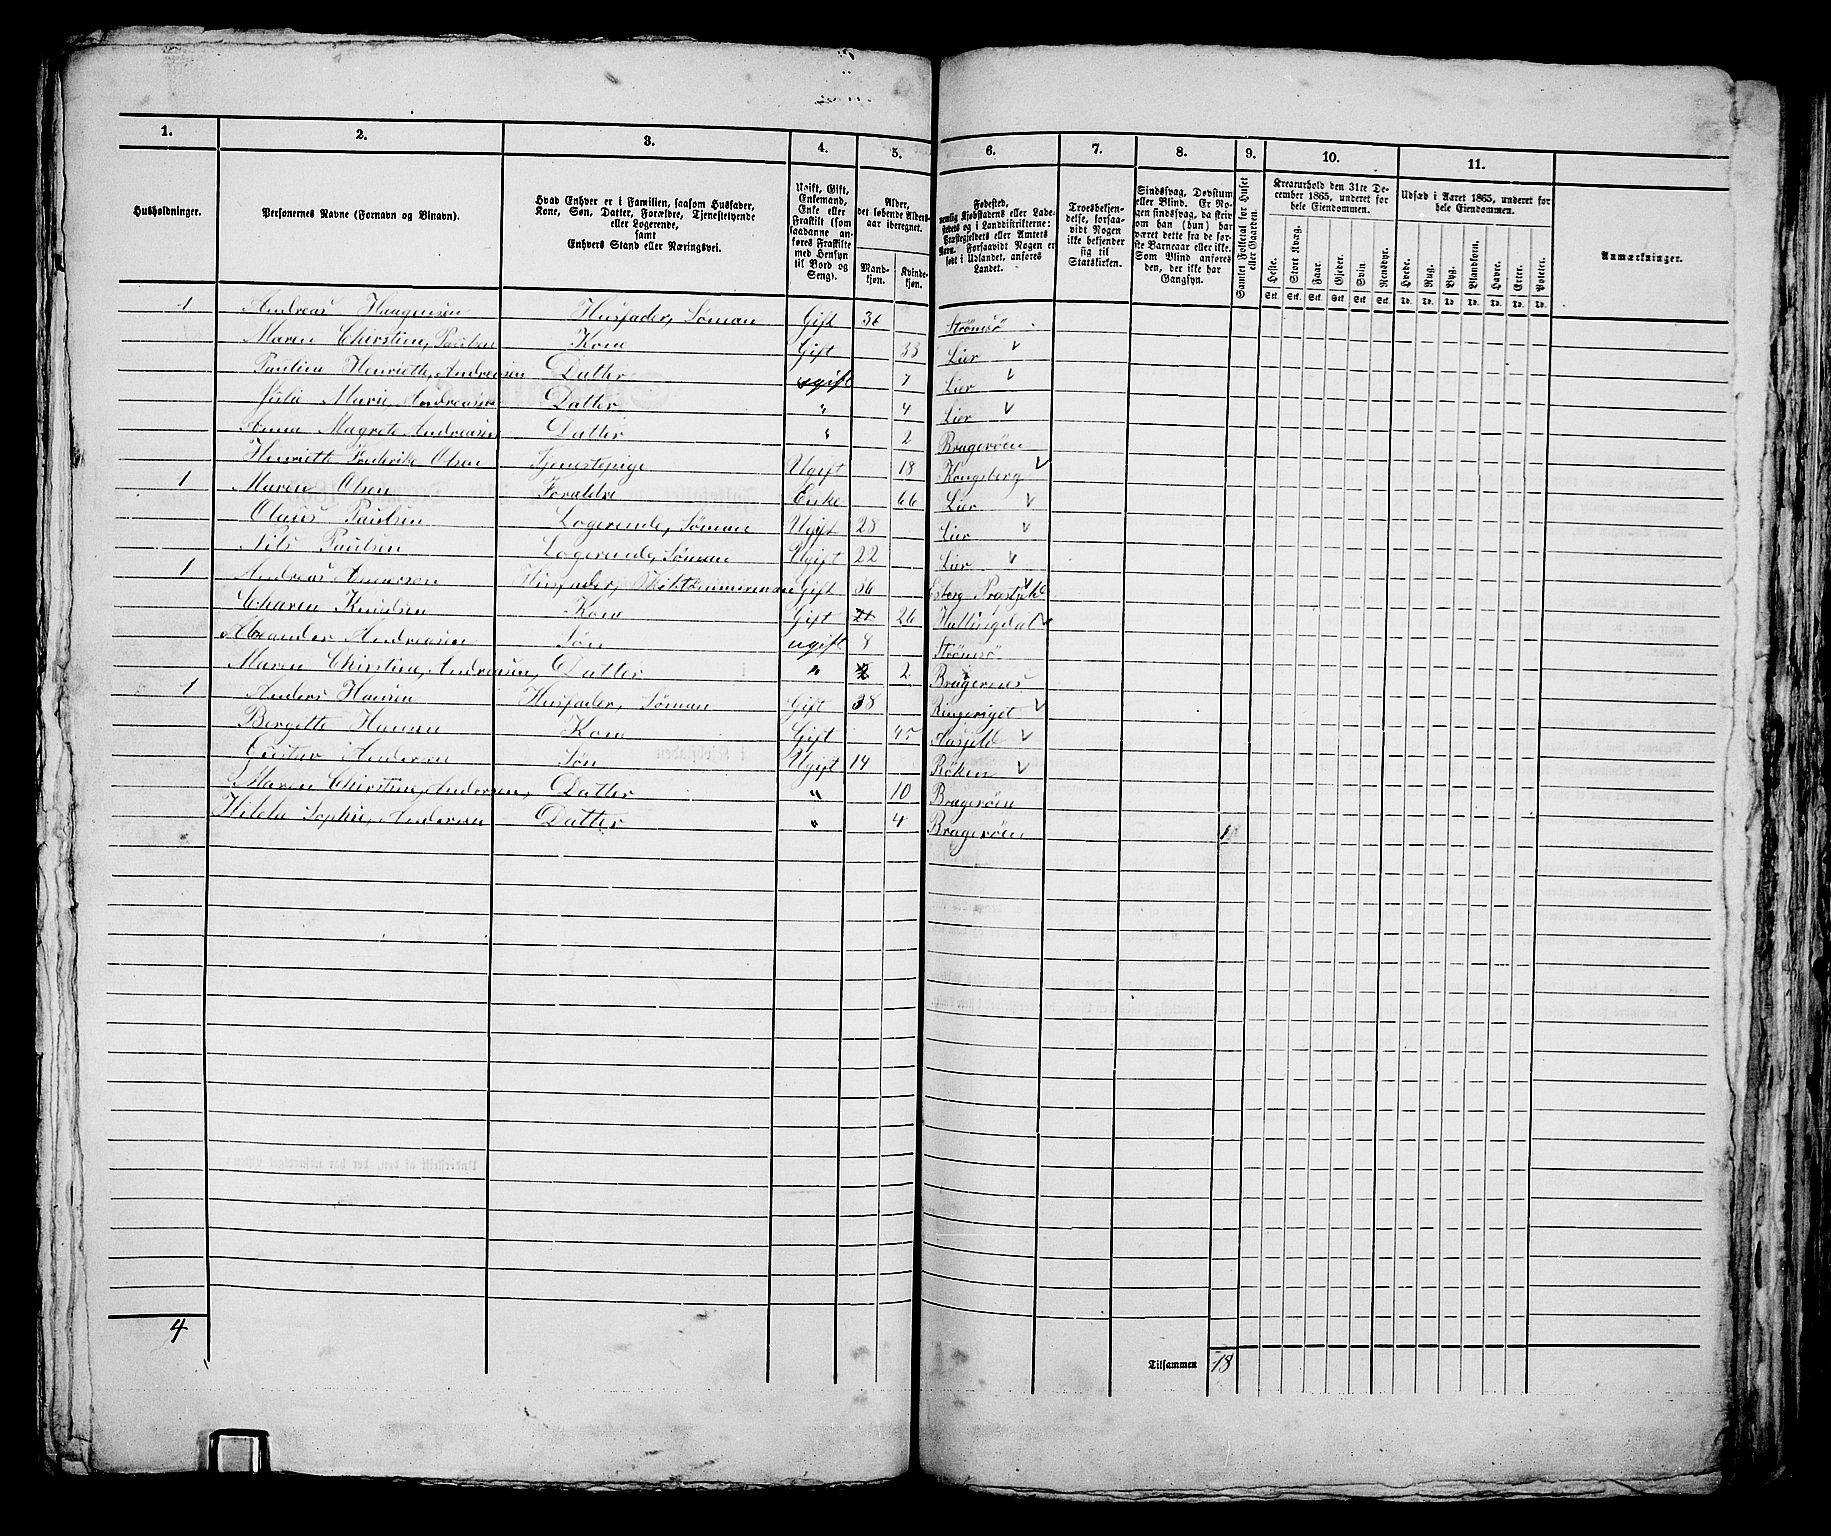 1. 2. 3. 4. 5. 6. 7. 8. 9. 10. 11.
Husholdninger.
Personernes Navne (Fornavn og Tilnavn).
Hvad Enhver er i Familien, saasom Husfader, Kone, Søn, Datter, Forældre, Tjenestetyende eller Logerende, samt Enhvers Stand eller Næringsvei.
Ugift, Gift, Enkemand, Enke eller Fraskilt (som saadanne anføres Fraskilte med Hensyn til Bord og Seng).
Alder, det løbende Aldersaar iberegnet.
Mandkjøn. Kvindekjøn.
Fødested, nemlig Kjøbstadens eller Ladestedets og i Landdistrikterne: Præstegjeldets eller Amtets Navn. Forsaavidt Nogen er født i Udlandet, anføres Landet.
Troesbekjendelse, forsaavidt Nogen ikke bekjender sig til Statskirken.
Sindssvag, Døvstum eller Blind. Er Nogen sindssvag, da skrives om han (hun) har været dette fra de første Barneaar eller ikke. Som Blind anføres den, der ikke har Gangsyn.
Samlet Folketal for Huset eller Gaarden.
Kreaturhold den 31te December 1865, underet for hele Eiendommen.
Heste. Stort Kvæg. Faar. Gjeder. Svin. Rensdyr.
St. St. St. St. St. St.
Udsæd i Aaret 1865, underet for hele Eiendommen.
Hvede. Rug. Byg. Blandkorn. Havre. Erter. Poteter.
Td. Td. Td. Td. Td. Td. Td.
Anmærkninger.
1 Andreas Haagensen Husfader, Søman Gift 36 Strømsö
Maren Chirstine, Paulsen Kone Gift 33 Lier
Paulina Henriethe, Andreasen Datter ugift 7 Lier
Julie Marie Andreasen Datter " 4 Lier
Anna Magrete Andreasen Datter " 2 Bragerøen
Henriette Frederike Olsen Tjenestepige Ugift 18 Kongsberg
1 Maren Olsen Foraldre Enke 66 Lier
Olaus Paulsen Logerende, Søman Ugift 28 Lier
Nils Paulsen Logerende, Søman Ugift 22 Lier
1 Andreas Husfader, Gift 36
Charen Knudsen Kone Gift 26 Hallingdal
Alexander Andreasen Søn ugift 8 Strömsö
Maren Chirstine, Andreasen, Datter " 2 Bragernes
1 Anders Hansen Husfader, Søman Gift 38 Ringeriget
Bergette Hansen Kone Gift 45
Gustav Andersen Søn Ugift 14 Röken
Maren Chirstine, Andersen, Datter " 10 Bragerøen
Hilda Sophie, Andersen Datter " 4 Bragerøen
4
Tilsammen 18